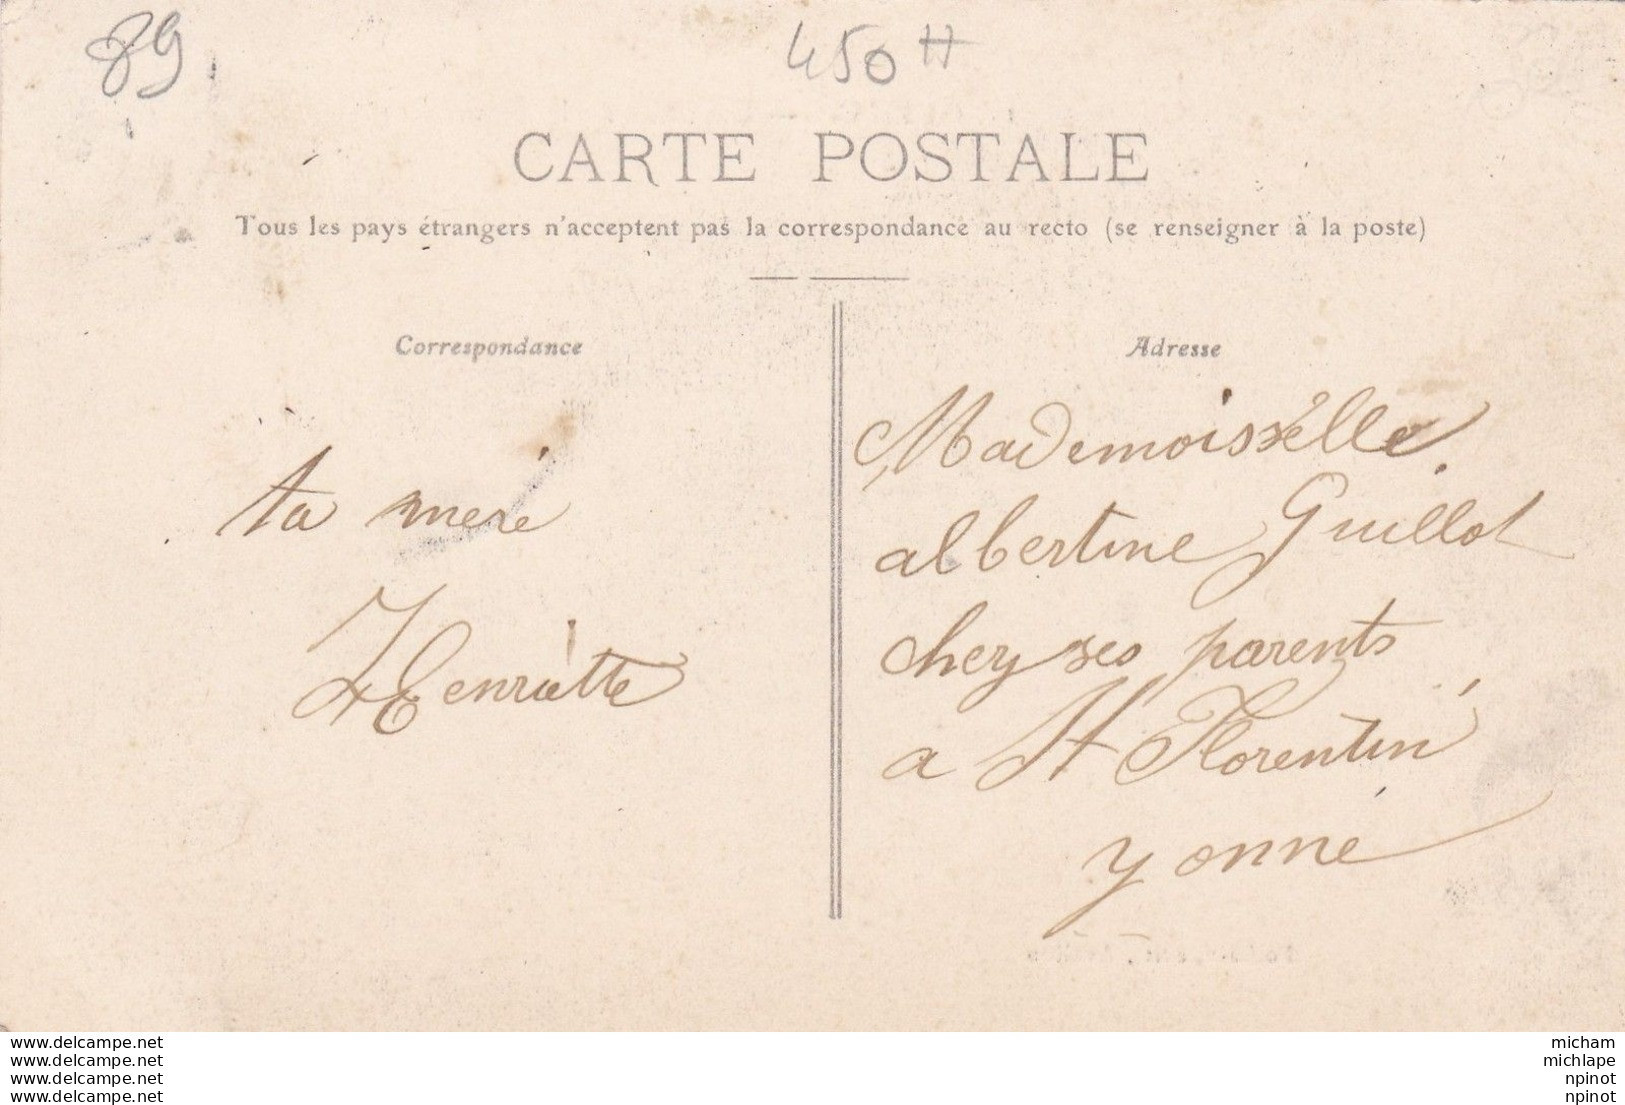 89
450 #
CARTE POSTALE
Tous les pays étrangers n'acceptent pas la correspondance au recto (se renseigner à la poste)
Correspondance
ta mere
Henriette
Adresse
Mademoisselle
albertine Guillot
chez ses parents
a St Florentin
yonne
www.delcampe.net
www.delcampe.net
www.delcampe.net
www.delcampe.net
micham
michlape
npinot
npinot